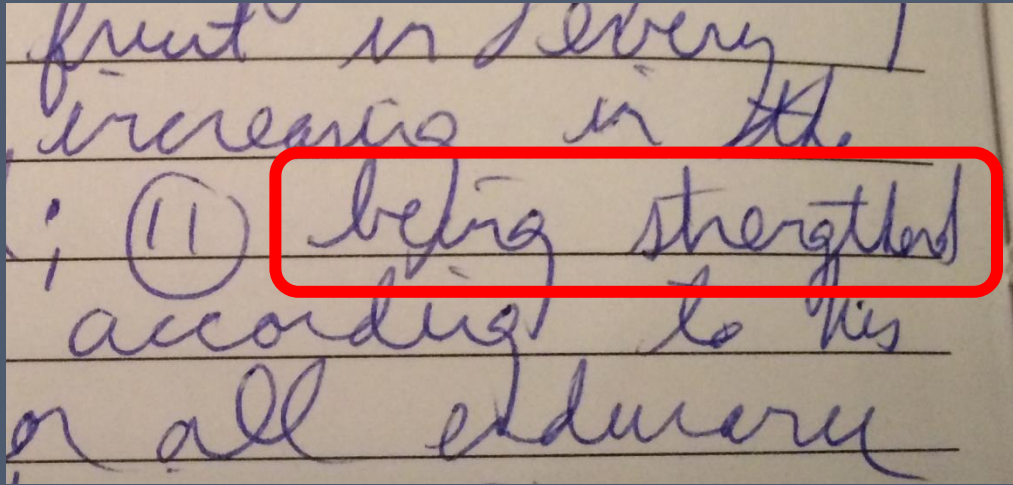 fruit in every
increasing in the
; (11) being strengthend
according to his
all endurance